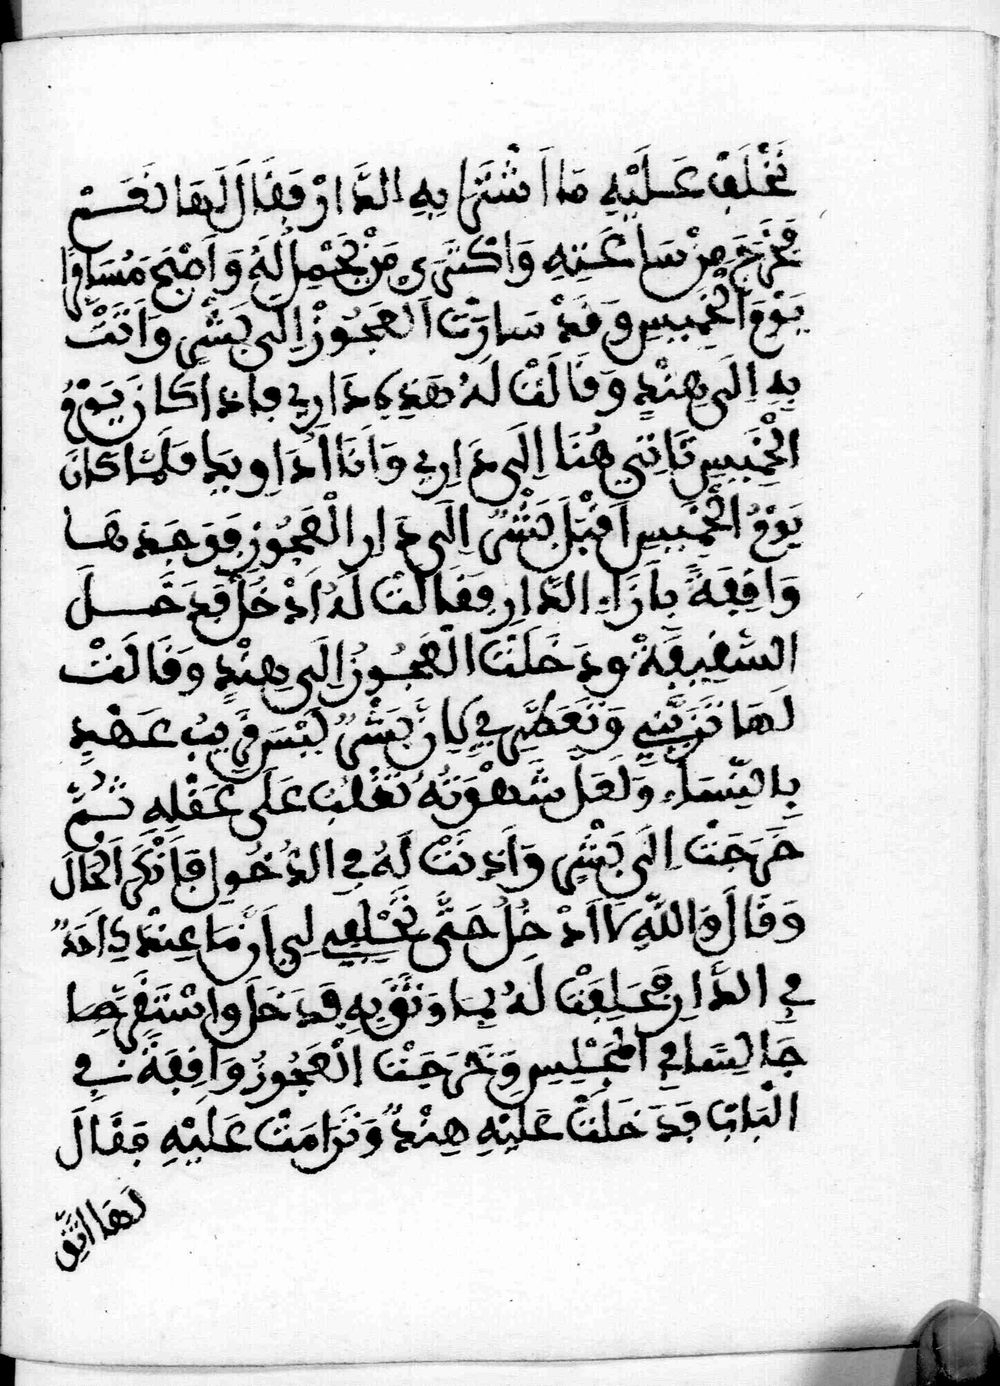 نَخْلَفْ عَلَيْهِ مَا اَشْتَهَا بِهِ الدَّارْ فَقَالَ لَهَا نَعَمْ
فَخَرَجَ مِنْ سَاعَتِهِ وَاكْتَرَى مَنْ يَحْمِلُ لَهُ وَاَصْبَحَ مُسَافِرًا
يَوْمَ الْخَمِيسِ وَقَدْ سَارَتْ اَلْعَجُوزْ اِلَى بَشْرٍ وَاَتَتْ
بِهِ اِلَى هِنْدٍ وَقَالَتْ لَهُ هَذِهِ دَارِي فَاِذَا كَانَ يَوْمُ
الْخَمِيسِ تَاتِنِي هُنَا اِلَى دَارِي وَاَنَا اُدَاوِيهِ فَلَمَّا كَانَ
يَوْمُ الْخَمِيسِ اَقْبَلَ بَشْرٌ اِلَى دَارِ الْعَجُوزِ فَوَجَدَهَا
وَاقِفَةً بِاَزَاءِ الدَّارِ فَقَالَتْ لَهُ اَدْخَلْ فَدَخَـلَ
الشَفِيفَةْ وَدَخَلَتْ الْعَجُوزُ اِلَى هِنْدٍ وَقَالَتْ
لَهَا تَزَيَّنِي وَتَعَطَّرِي فَاِنَّ بَشْرٌ لَيْسَ قَرِيبُ عَهْدٍ
بِالنِّسَاءِ وَلَعَلَّ شَهْوَتُهُ تَغْلِبُ عَلَى عَقْلِهِ ثُمَّ
خَرَجَتْ اِلَى بَشْرٍ وَاَذِنَتْ لَهُ فِي الدُّخُولِ فَاَنْكَرَ اَلْحَالَ
وَقَالَ وَاللَّهِ لَا اَدْخُلُ حَتَّى تَحْلِفِي لِي اَنْ مَا عِنْدَكِ اَحَدٌ
فِي الدَّارِ فَحَلِفَتْ لَهُ بِمَا وَثَقَ بِهِ فَدَخَلَ وَاسْتَقَرَّ بِهَا
جَالِسًا فِي الْمَجْلِيسِ وَخَرَجَتْ الْعَجُوزُ وَاقِفَةً فِي
الْبَابِ فَدَخَلَتْ عَلَيْهِ هِنْدٌ وَتَرَامَتْ عَلَيْهِ فَقَالَ
لَهَا اتَّقِ